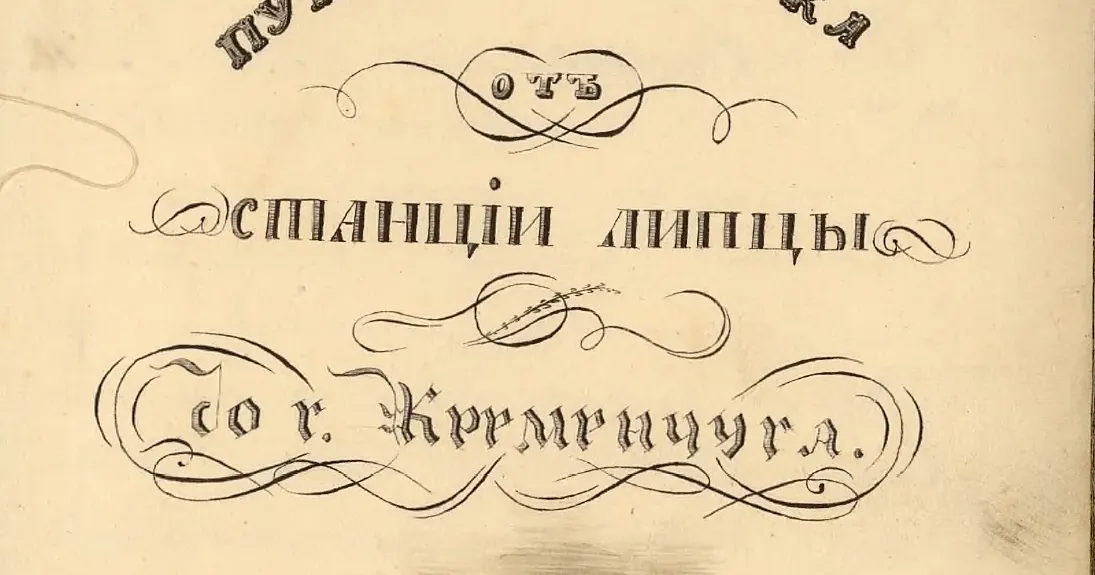 отъ
станціи липцы
до г. Кременчуга.